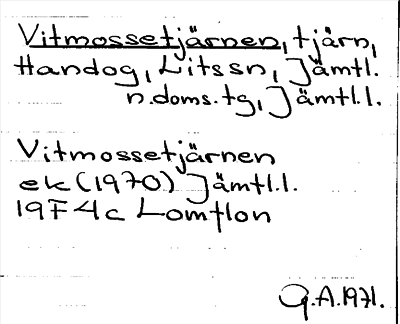 Vitmossetjärnen, tjärn,
Handog, Litssn, Jämtl.
n.doms.tg, Jämtl.l.
Vitmossetjärnen
ek (1970) Jämtl.l.
19F4c Lomtlon
G.A.1971.